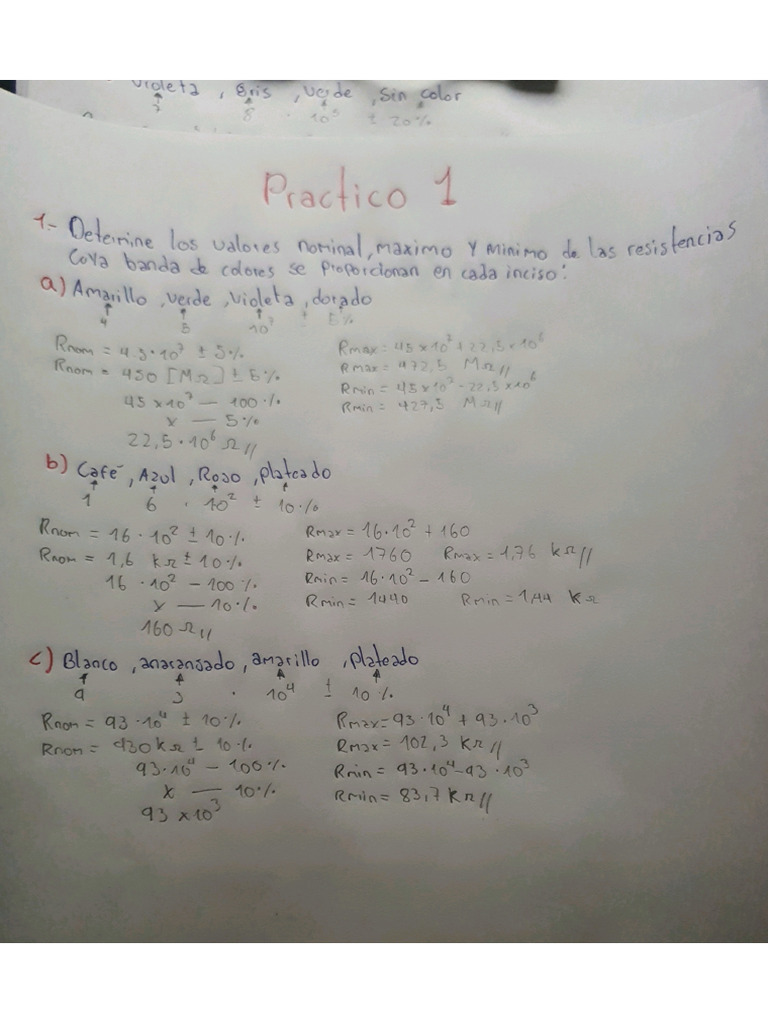 Violeta, Gris, verde, sin color
7 8 . 10⁵ ± 20%
Practico 1
1.- Determine los valores nominal, maximo y minimo de las resistencias
Coya banda de colores se proporcionan en cada inciso:
a) Amarillo, verde, violeta, dorado
4 5 10⁷ ± 5%
Rnom = 45·10⁷ ± 5%
Rnom = 450 [MΩ] ± 5%
45 x10⁷ — 100%
x — 5%
22,5·10⁶ Ω//
Rmax = 45x10⁷ + 22,5x10⁶
Rmax = 472,5 MΩ//
Rmin = 45x10⁷ - 22,5x10⁶
Rmin = 427,5 MΩ//
b) Café, Azul, Rojo, plateado
1 6 . 10² ± 10%
Rnom = 16·10² ± 10%
Rnom = 1,6 kΩ ± 10%
16·10² — 100%
x — 10%
160 Ω//
Rmax = 16·10² + 160
Rmax = 1760 Rmax = 1,76 kΩ//
Rmin = 16·10² - 160
Rmin = 1440 Rmin = 1,44 kΩ
c) Blanco, , amarillo, plateado
9 3 . 10⁴ ± 10%
Rnom = 93·10⁴ ± 10%
Rnom = 930 kΩ ± 10%
93·10⁴ — 100%
x — 10%
93 x10³
Rmax = 93·10⁴ + 93·10³
Rmax = 102,3 KΩ//
Rmin = 93·10⁴ - 93·10³
Rmin = 83,7 KΩ//